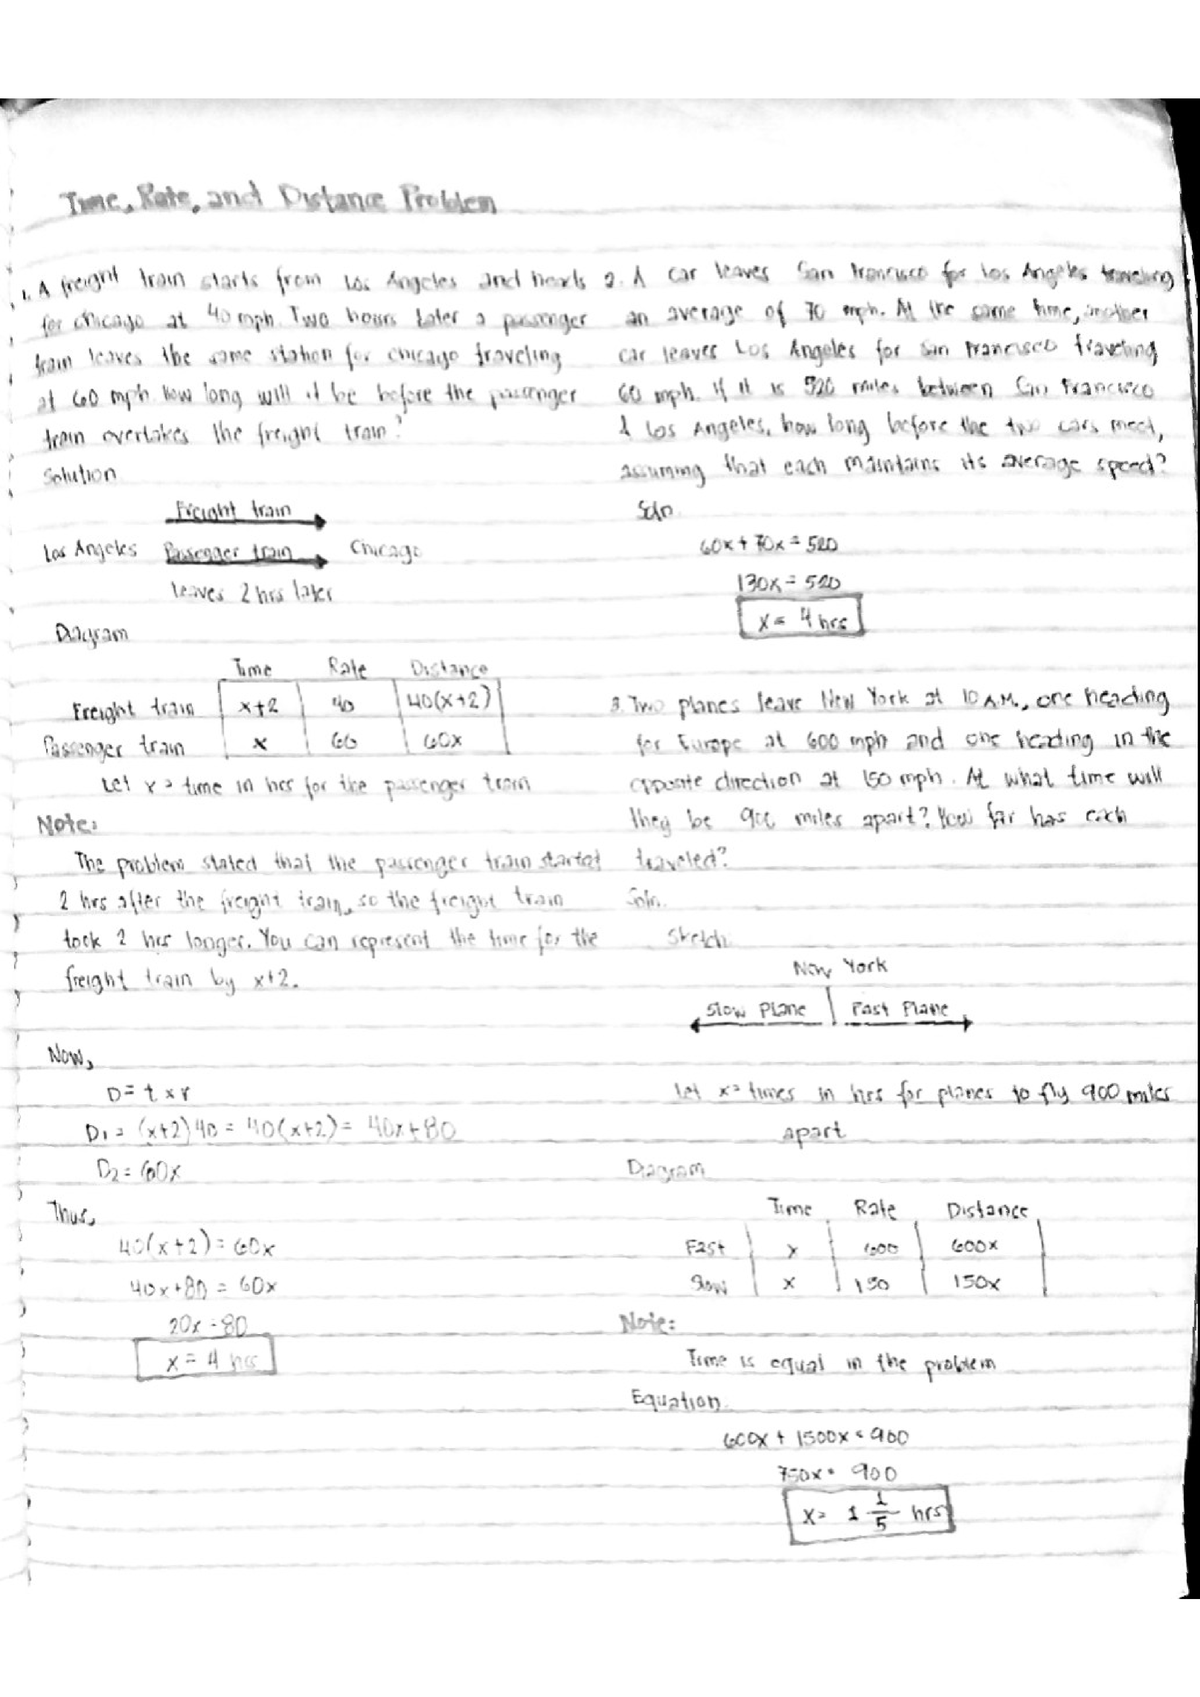 Time, Rate, and Distance Problem
1. A freight train starts from Los Angeles and heads
for Chicago at 40 mph. Two hours later a passenger
train leaves the same station for Chicago traveling
at 60 mph. How long will it be before the passenger
train overtakes the freight train?
Solution
Freight train
Los Angeles Passenger train Chicago
leaves 2 hrs later
Diagram
Time Rate Distance
Freight train x+2 40 40(x+2)
Passenger train x 60 60x
Let x = time in hrs for the passenger train
Note:
The problem stated that the passenger train started
2 hrs after the freight train, so the freight train
took 2 hrs longer. You can represent the time for the
freight train by x+2.
Now,
D = t x r
D1 = (x+2)40 = 40(x+2) = 40x+80
D2 = 60x
Thus,
40(x+2) = 60x
40x+80 = 60x
20x = 80
x = 4 hrs
2. A car leaves San Francisco for Los Angeles traveling
an average of 70 mph. At the same time, another
car leaves Los Angeles for San Francisco traveling
60 mph. If it is 520 miles between San Francisco
& Los Angeles, how long before the two cars meet,
assuming that each maintains its average speed?
Soln
60x + 70x = 520
130x = 520
x = 4 hrs
3. Two planes leave New York at 10 A.M., one heading
for Europe at 600 mph and one heading in the
opposite direction at 150 mph. At what time will
they be 900 miles apart? How far has each
traveled?
Soln.
Sketch
New York
Slow Plane Fast Plane
Let x = times in hrs for planes to fly 900 miles
apart
Diagram
Time Rate Distance
Fast x 600 600x
Slow x 150 150x
Note:
Time is equal in the problem
Equation
600x + 1500x = 900
750x = 900
x = 1 1/5 hrs